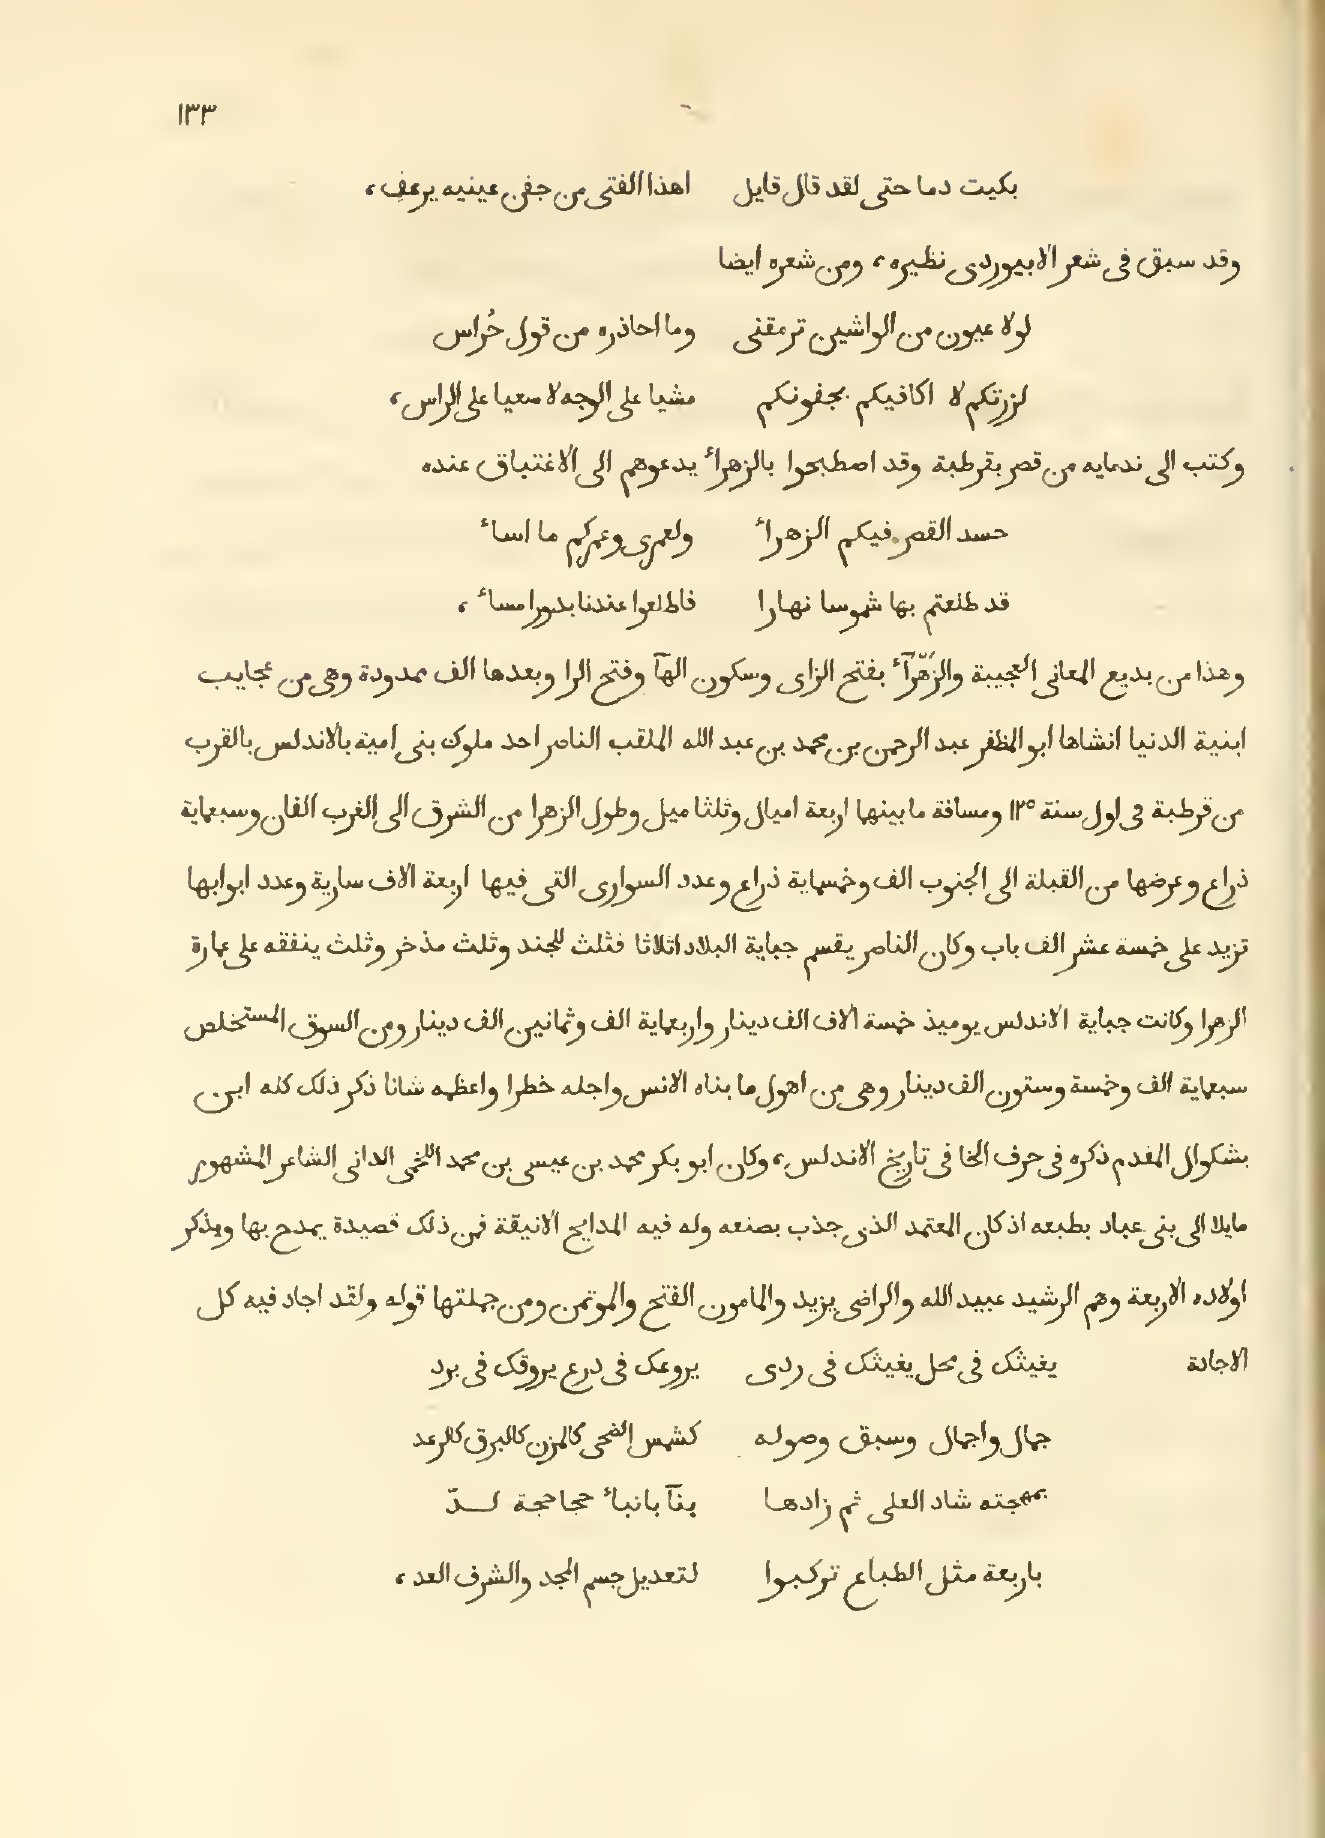 ١٣٣
بكيت دما حتى لقد قال قايل اهذا الفتى من جفن عينيه يرعف،
وقد سبق فى شعر الابيوردى نظيره، ومن شعره ايضا
لولا عيون من الواشين ترمقنى وما احاذره من قول حُراس
لزرتكم لا اكافيكم بجفونكم مشيا على الوجه لا سعيا على الراس،
وكتب الى ندمايه من قصر بقرطبة وقد اصطبحوا بالزهراء يدعوهم الى الاغتباق عنده
حسد القصر فيكم الزهراء ولعمرى وعمركم ما اساء
قد طلعتم بها شموسا نهارا فاطلعوا عندنا بدورا مساء،
وهذا من بديع المعانى العجيبة والزَهّرآء بفتح الزاى وسكون الهآ وفتح الرا وبعدها الف ممدودة وهى من عجايب
ابنية الدنيا انشاها ابو المظفر عبد الرحمن بن محمد بن عبد الله الملقب الناصر احد ملوك بنى امية بالاندلس بالقرب
من قرطبة فى اول سنة ١٢٥ ومسافة ما بينها اربعة اميال وثلثا ميل وطول الزهرا من الشرق الى الغرب الفان وسبعماية
ذراع وعرضها من القبلة الى الجنوب الف وخمسماية ذراع وعدد السوارى التى فيها اربعة الاف سارية وعدد ابوابها
تزيد على خمسة عشر الف باب وكان الناصر يقسم جباية البلاد اثلاثا فثلث للجند وثلث مذخر وثلث ينفقه على عمارة
الزهرا وكانت جباية الاندلس يوميذ خمسة الاف الف دينار واربعماية الف وثمانين الف دينار ومن السوق المستخلص
سبعماية الف وخمسة وستون الف دينار وهى من اهول ما بناه الانس واجله خطرا واعظمه شانا ذكر ذلك كله ابن
بشكوال المقدم ذكره فى حرف الخا فى تاريخ الاندلس، وكان ابو بكر محمد بن عيسى بن محمد اللخمى الدانى الشاعر المشهور
مايلا الى بنى عباد بطبعه اذ كان المعتمد الذى جذب بضنعه وله فيه المدايح الانيقة فمن ذلك قصيدة يمدح بها ويذكر
اولاده الاربعة وهم الرشيد عبيد الله والراضى يزيد والمامون الفتح والموتمن ومن جملتها قوله ولقد اجاد فيه كل
الاجادة يغيثك فى محل يغيثك فى ردى يروعك فى درع يروقك فى برد
جمال واجمال وسبق وصوله كشمس الضحى كالمزن كالبرق كالرعد
بمهجته شاد العلى ثم زادها بنآ بانباء حجاحجة لـدّ
باربعة مثل الطباع تركبوا لتعديل جسم المجد والشرف العد،